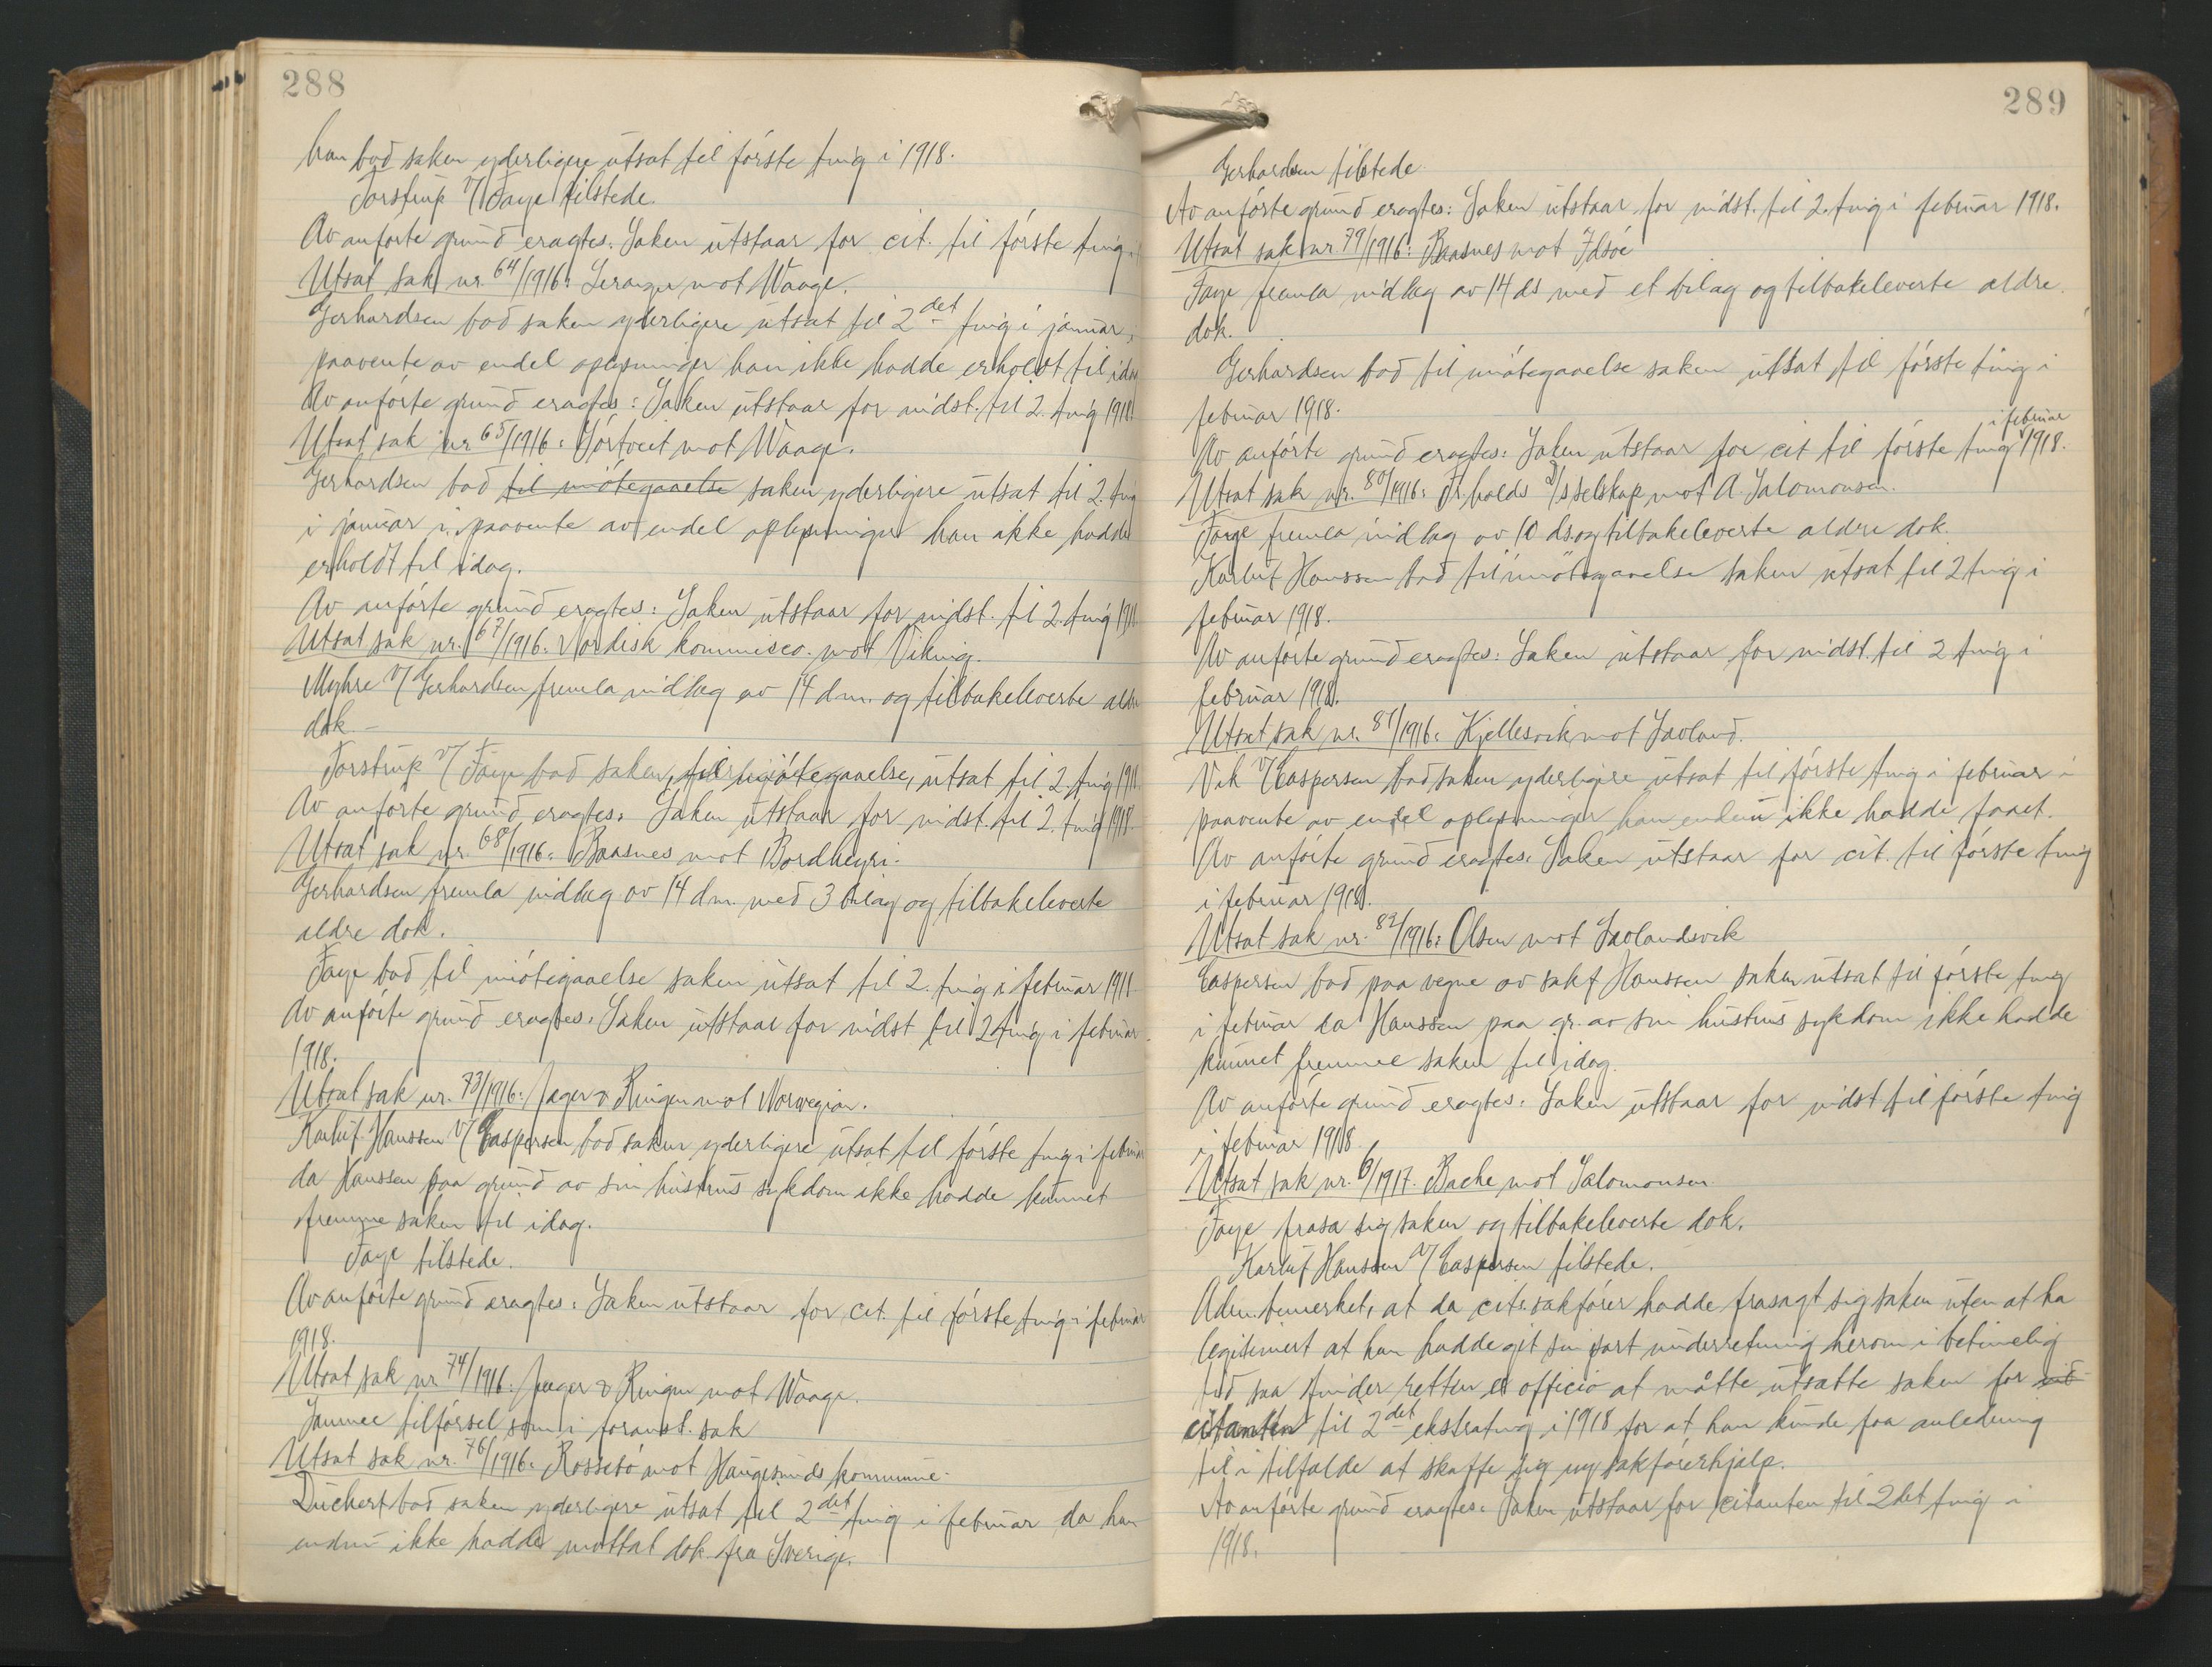 288
han bad saken yderligere utsat til første ting i 1918.
Torstrup v/ Faye tilstede.
Av anførte grund eragtes: Saken utstaar for cit. til første ting
Utsat sak nr. 64/1916: Leranger mot Waage.
Gerhardsen bad saken yderligere utsat til 2det ting i januar,
paavente av endel oplysninger han ikke hadde erholdt til idag
Av anførte grund eragtes: Saken utstaar for indst. til 2. ting 1918.
Utsat sak nr. 65/1916: Hjørtveit mot Waage.
Gerhardsen bad til imøtegaaelse saken yderligere utsat til 2. ting
i januar i paavente av endel oplysninger han ikke hadde
erholdt til idag.
Av anførte grund eragtes: Saken utstaar for indst. til 2. ting 1918
Utsat sak nr. 67/1916: Nordisk kommisco. mot Viking.
Myhre v/ Gerhardsen fremla indlæg av 14 dm. og tilbakeleverte ældre
dok. –
Torstrup v/ Faye bad saken, til imøtegaaelse, utsat til 2. ting 1918.
Av anførte grund eragtes: Saken utstaar for indst. til 2. ting 1918.
Utsat sak nr. 68/1916: Baasnes mot Bordheyri.
Gerhardsen fremla indlæg av 14 dm. med 3 bilag og tilbakeleverte
ældre dok.
Faye bad til imøtegaaelse saken utsat til 2. ting i februar 1918
Av anførte grund eragtes: Saken utstaar for indst til 2 ting i februar
1918.
Utsat sak nr. 73/1916: Jæger & Ringen mot Norwegian.
Karluf Hanssen v/ Caspersen bad saken yderligere utsat til første ting i februar
da Hanssen paa grund av sin hustrus sykdom ikke hadde kunnet
fremme saken til idag.
Faye tilstede.
Av anførte grund eragtes: Saken utstaar for cit. til første ting i februar
1918.
Utsat sak nr 74/1916: Jæger & Ringen mot Waage.
Samme tilførsel som i foranst. sak
Utsat sak nr. 76/1916: Rossebø mot Haugesunds kommune.
Duckert bad saken yderligere utsat til 2det ting i februar da han
endnu ikke hadde mottat dok. fra Sverige.
289
Gerhardsen tilstede.
Av anførte grund eragtes: Saken utstaar for indst. til 2. ting i februar 1918.
Utsat sak nr. 79/1916: Baasnes mot Ilsøe
Faye fremla indlæg av 14 ds med et bilag og tilbakeleverte ældre
dok.
Gerhardsen bad til imøtegaaelse saken utsat til første ting i
februar 1918.
Av anførte grund eragtes: Saken utstaar for cit til første ting i februar 1918.
Utsat sak nr. 80/1916: Fr. holds A/s selskap mot A. Salomonsen.
Faye fremla indlæg av 10 ds og tilbakeleverte ældre dok.
Karluf Hanssen bad til imøtegaaelse saken utsat til 2 ting i
februar 1918.
Av anførte grund eragtes: Saken utstaar for indst. til 2 ting i
februar 1918.
Utsat sak nr. 81/1916: Kjellesvik mot Søvland.
Vik v/ Caspersen bad saken yderligere utsat til første ting i februar i
paavente av endel oplysninger han endnu ikke hadde faaet.
Av anførte grund eragtes: Saken utstaar for cit. til første ting
i februar 1918.
Utsat sak nr. 82/1916: Olsen mot Søvlandsvik
Caspersen bad paa vegne av sakf. Hanssen saken utsat til første ting
i februar da Hanssen paa gr. av sin hustrus sykdom ikke hadde
kunnet fremme saken til idag.
Av anførte grund eragtes: Saken utstaar for indst til første ting
i februar 1918.
Utsat sak nr. 6/1917. Bache mot Salomonsen.
Faye frasa sig saken og tilbakeleverte dok.
Karluf Hanssen v/ Caspersen tilstede.
Adm. bemerket, at da cits. sakfører hadde frasagt sig saken uten at ha
legitimert at han hadde git sin part underretning herom i betimelig
tid saa finder retten ex officio at måtte utsætte saken for
citanten til 2det ekstrating i 1918 for at han kunde faa anledning
til i tilfælde at skaffe sig ny sakførerhjælp.
Av anførte grund eragtes: Saken utstaar for citanten til 2det ting i
1918.